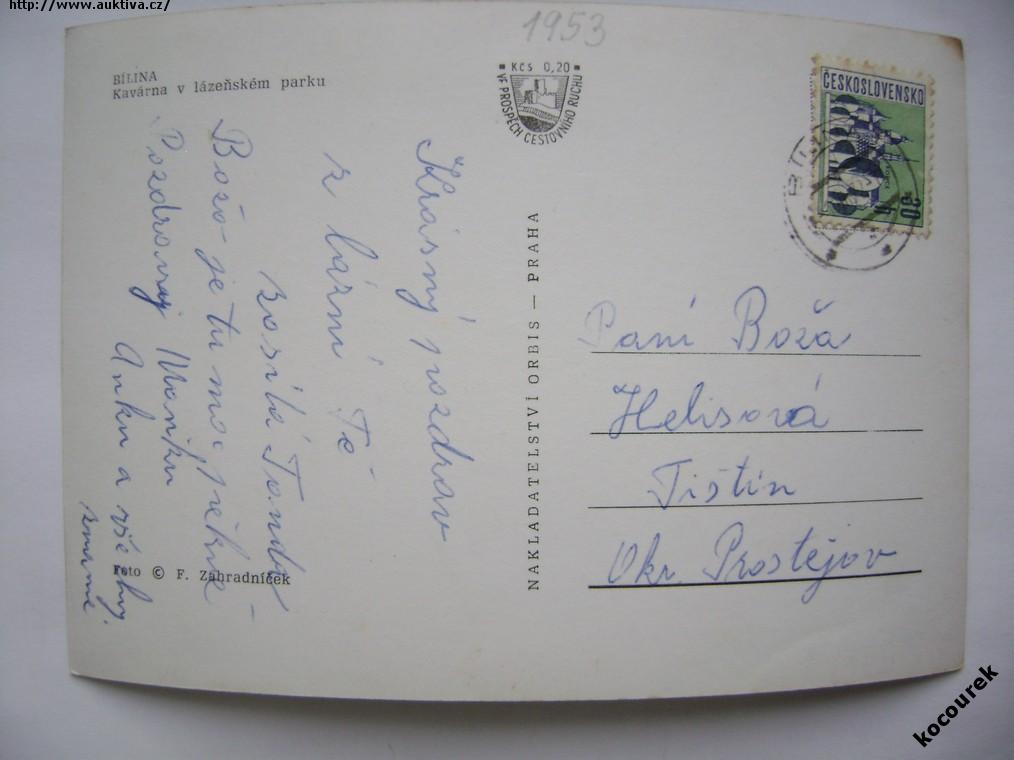 http://www.auktiva.cz/
1953
BÍLINA
Kavárna v lázeňském parku
Kčs 0,20
VE PROSPĚCH CESTOVNÍHO RUCHU
ČESKOSLOVENSKO
30 h
Krásný pozdrav
z lázní Tě
zasílá Tonda
Božo je tu moc pěkně
Pozdravuj Mařku
Anku a všechny
známé
NAKLADATELSTVÍ ORBIS — PRAHA
Paní Boža
Helisová
Tištín
Okr. Prostějov
Foto © F. Zahradníček
kocourek